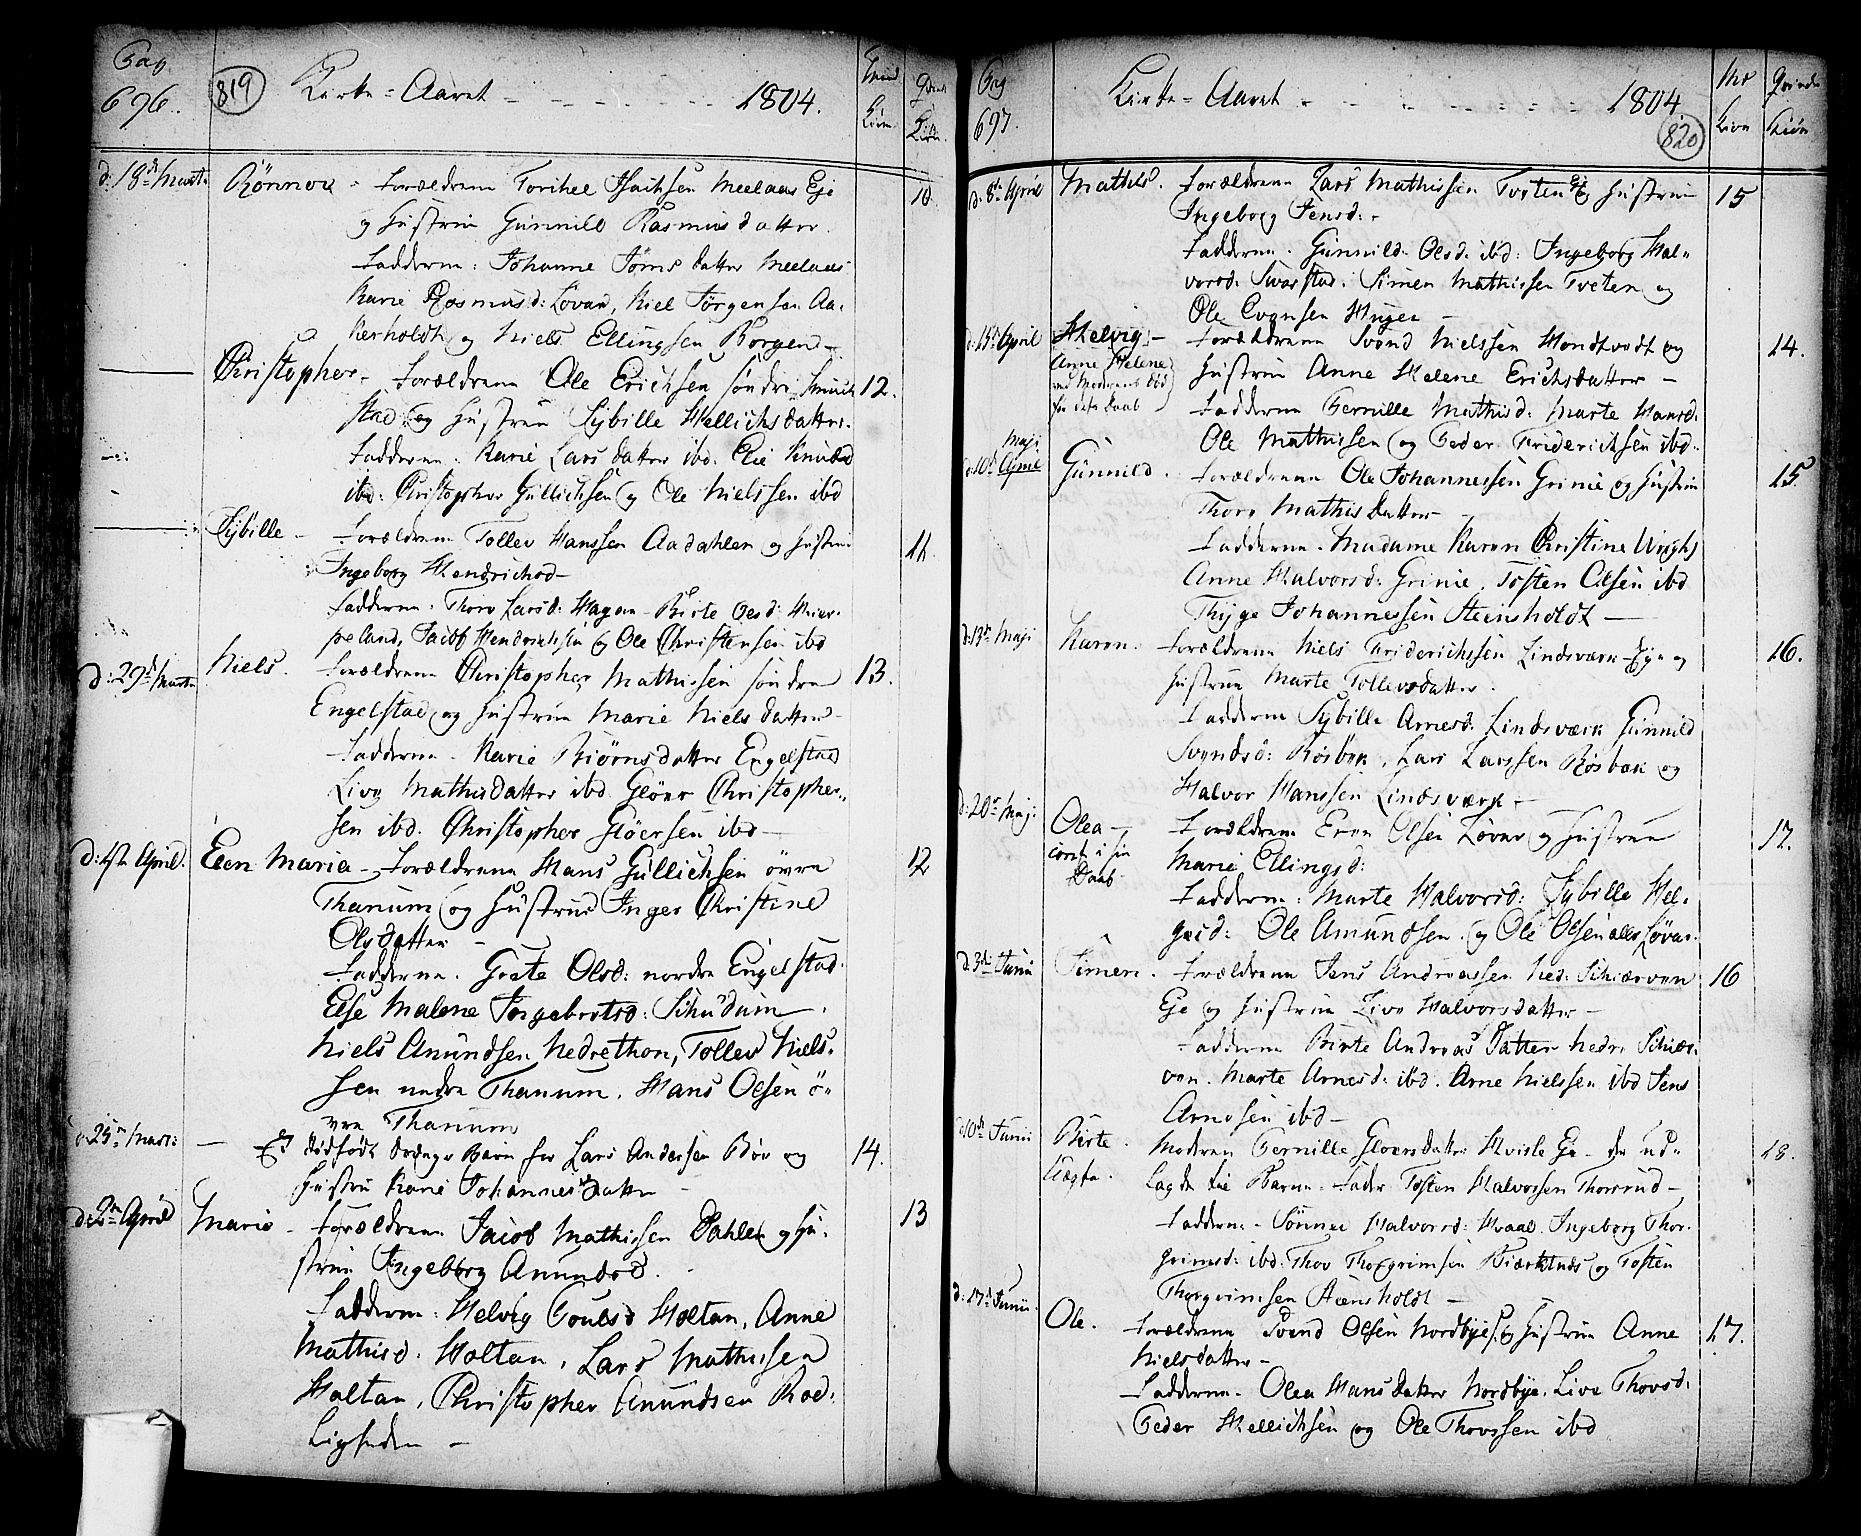 Pag 696. 819 Kirke-Aaret 1804. Mand Kiön. Qvind Kiön.
d: 18de Marti Rönnov - Forældrene Torikel Isaichsen Meelaas Eje 10.
og Hustrue Gunnild Rasmusdatter.
Fadderne: Johanne Jörns datter Meelaas
Karie Rasmusd: Løvar, Niel Jörgensen Aa-
kerholdt og Niels Ellingsen Borgen -
Christopher - Forældrene Ole Erichsen söndre Smuch 12.
stad og Hustrue Sybille Hellichsdatter.
Fadderne: Karie Larsdatter ibd. Elie Knudsd
ibd: Christopher Gullichsen og Ole Nielssen ibd
Sybille - Forældrene Tollev Hanssen Aadahlen og Hustrue 11.
Ingeborg Hendrichsd -
Fadderne: Thore Larsd: Hagan - Birte Olsd: Hvier-
peland, Jacob Hendrichsen og Ole Christensen ibd
d: 29de Marti Niels. Forældrene Christopher Mathissen söndre 13.
Engelstad og Hustrue Marie Nielsdatter -
Fadderne - Karie Biörnsdatter Engelstad
Live Mathisdatter ibd. Glöer Christopher-
sen ibd. Christopher Glöersen ibd -
d: 1ste April. Elen Maria - Forældrene Hans Gullichsen övre 12
Thanum og Hustrue Inger Christine
Olsdatter -
Fadderne. Grete Olsd: nordre Engelstad.
Else Malene Ingebretsd: Schudum -
Niels Anundsen Nedrethon, Tollev Niels-
sen nedre Thanum, Hans Olsen ö-
vre Thanum
d: 25de Marti: - Et dödfödt drenge Barn for Lars Anderssen Böe og 14.
Hustru Karie Johannesdatter -
d: 2den April Marie - Forældrene Jacob Mathissen Dahlen og Hu- 13
strue Ingeborg Anundsd.
Fadderne: Helvig Poulsd Holtan, Anne
Mathisd. Holtan, Lars Mathissen
Holtan, Christopher Anundsen Rod-
Ligheden -
Pag 697. Kirke-Aaret 1804. 820 Kiön Qvinde Kiön
d: 8de April Mathis. Forældrene Lars Mathissen Tveten Eje og Hustrue 15
Ingeborg Jensd: -
Fadderne. Gunnild Olsd. ibd: Ingeborg Hal-
vorsd: Svarstad. Simen Mathissen Tveten og
Ole Evensen
d: 15de April Helvig - Forældrene Svend Nielssen Hondtvedt og 14.
Anne Helene Hustrue Anne Helene Erichsdatter -
ved Moderens död
för dets Daab Fadderne Pernille Mathisd: Marte Hansd:
Ole Mathissen og Peder Friderichsen ibd.
Maji
d: 10de April Gunnild. Forældrene Ole Johannessen Grinie og Hustrue 15.
Thore Mathisdatter -
Fadderne. Madame Karen Christine Wright
Anne Halvorsd: Grinie. Tosten Olsen ibd
Thyge Johannessen Steensholdt -
d: 13de Maji Karen. Forældrene Niels Friderichssen Lindsværn Eje og 16.
Hustrue Marte Tollevsdatter.
Fadderne Sybille Arnesd. Lindsværn Gunnild
Svendsd: Rösbye, Lars Larssen Rösbøn og
Halvor Hanssen Lindsværn -
d: 20de Maj: Olea - Forældrene Even Olsen Løvar og Hustrue 17.
i sin Daab Marie Ellingsd:
Fadderne: Marte Halvorsd: Sybille Hel-
Ole Amundsen. og Ole Olsen alle Løvar.
d: 3die Junii Simen. Forældrene Jens Andreassen Ned: Schierven 16
Eje og Hustrue Live Halvorsdatter -
Fadderne Birte Andreas Datter nedr. Schier-
ven. Marte Arnesd: ibd. Arne Nielssen ibd Jens
Arnesen ibd -
d: 10de Junii Birte. Moderen Pernille Gloersdatter Hvisle Eje - de ud- 18.
Uægte. lagde til Barne-Fader Tosten Halvorssen Thorsrud -
Fadderne - Sönnev Halvorsd: Hvaal. Ingeborg Thor-
grimsd: ibd: Thov Thorgrimsen Biærknes og Tosten
Thorgrimsen Steensholdt -
d: 17de Junii. Ole. Forældrene Svend Olsen Nordbye og Hustrue Anne 17.
Nielsdatter -
Fadderne - Olea Hansdatter Nordbye. Live Thovsd:
Peder Hellichsen og Ole Thovssen ibd